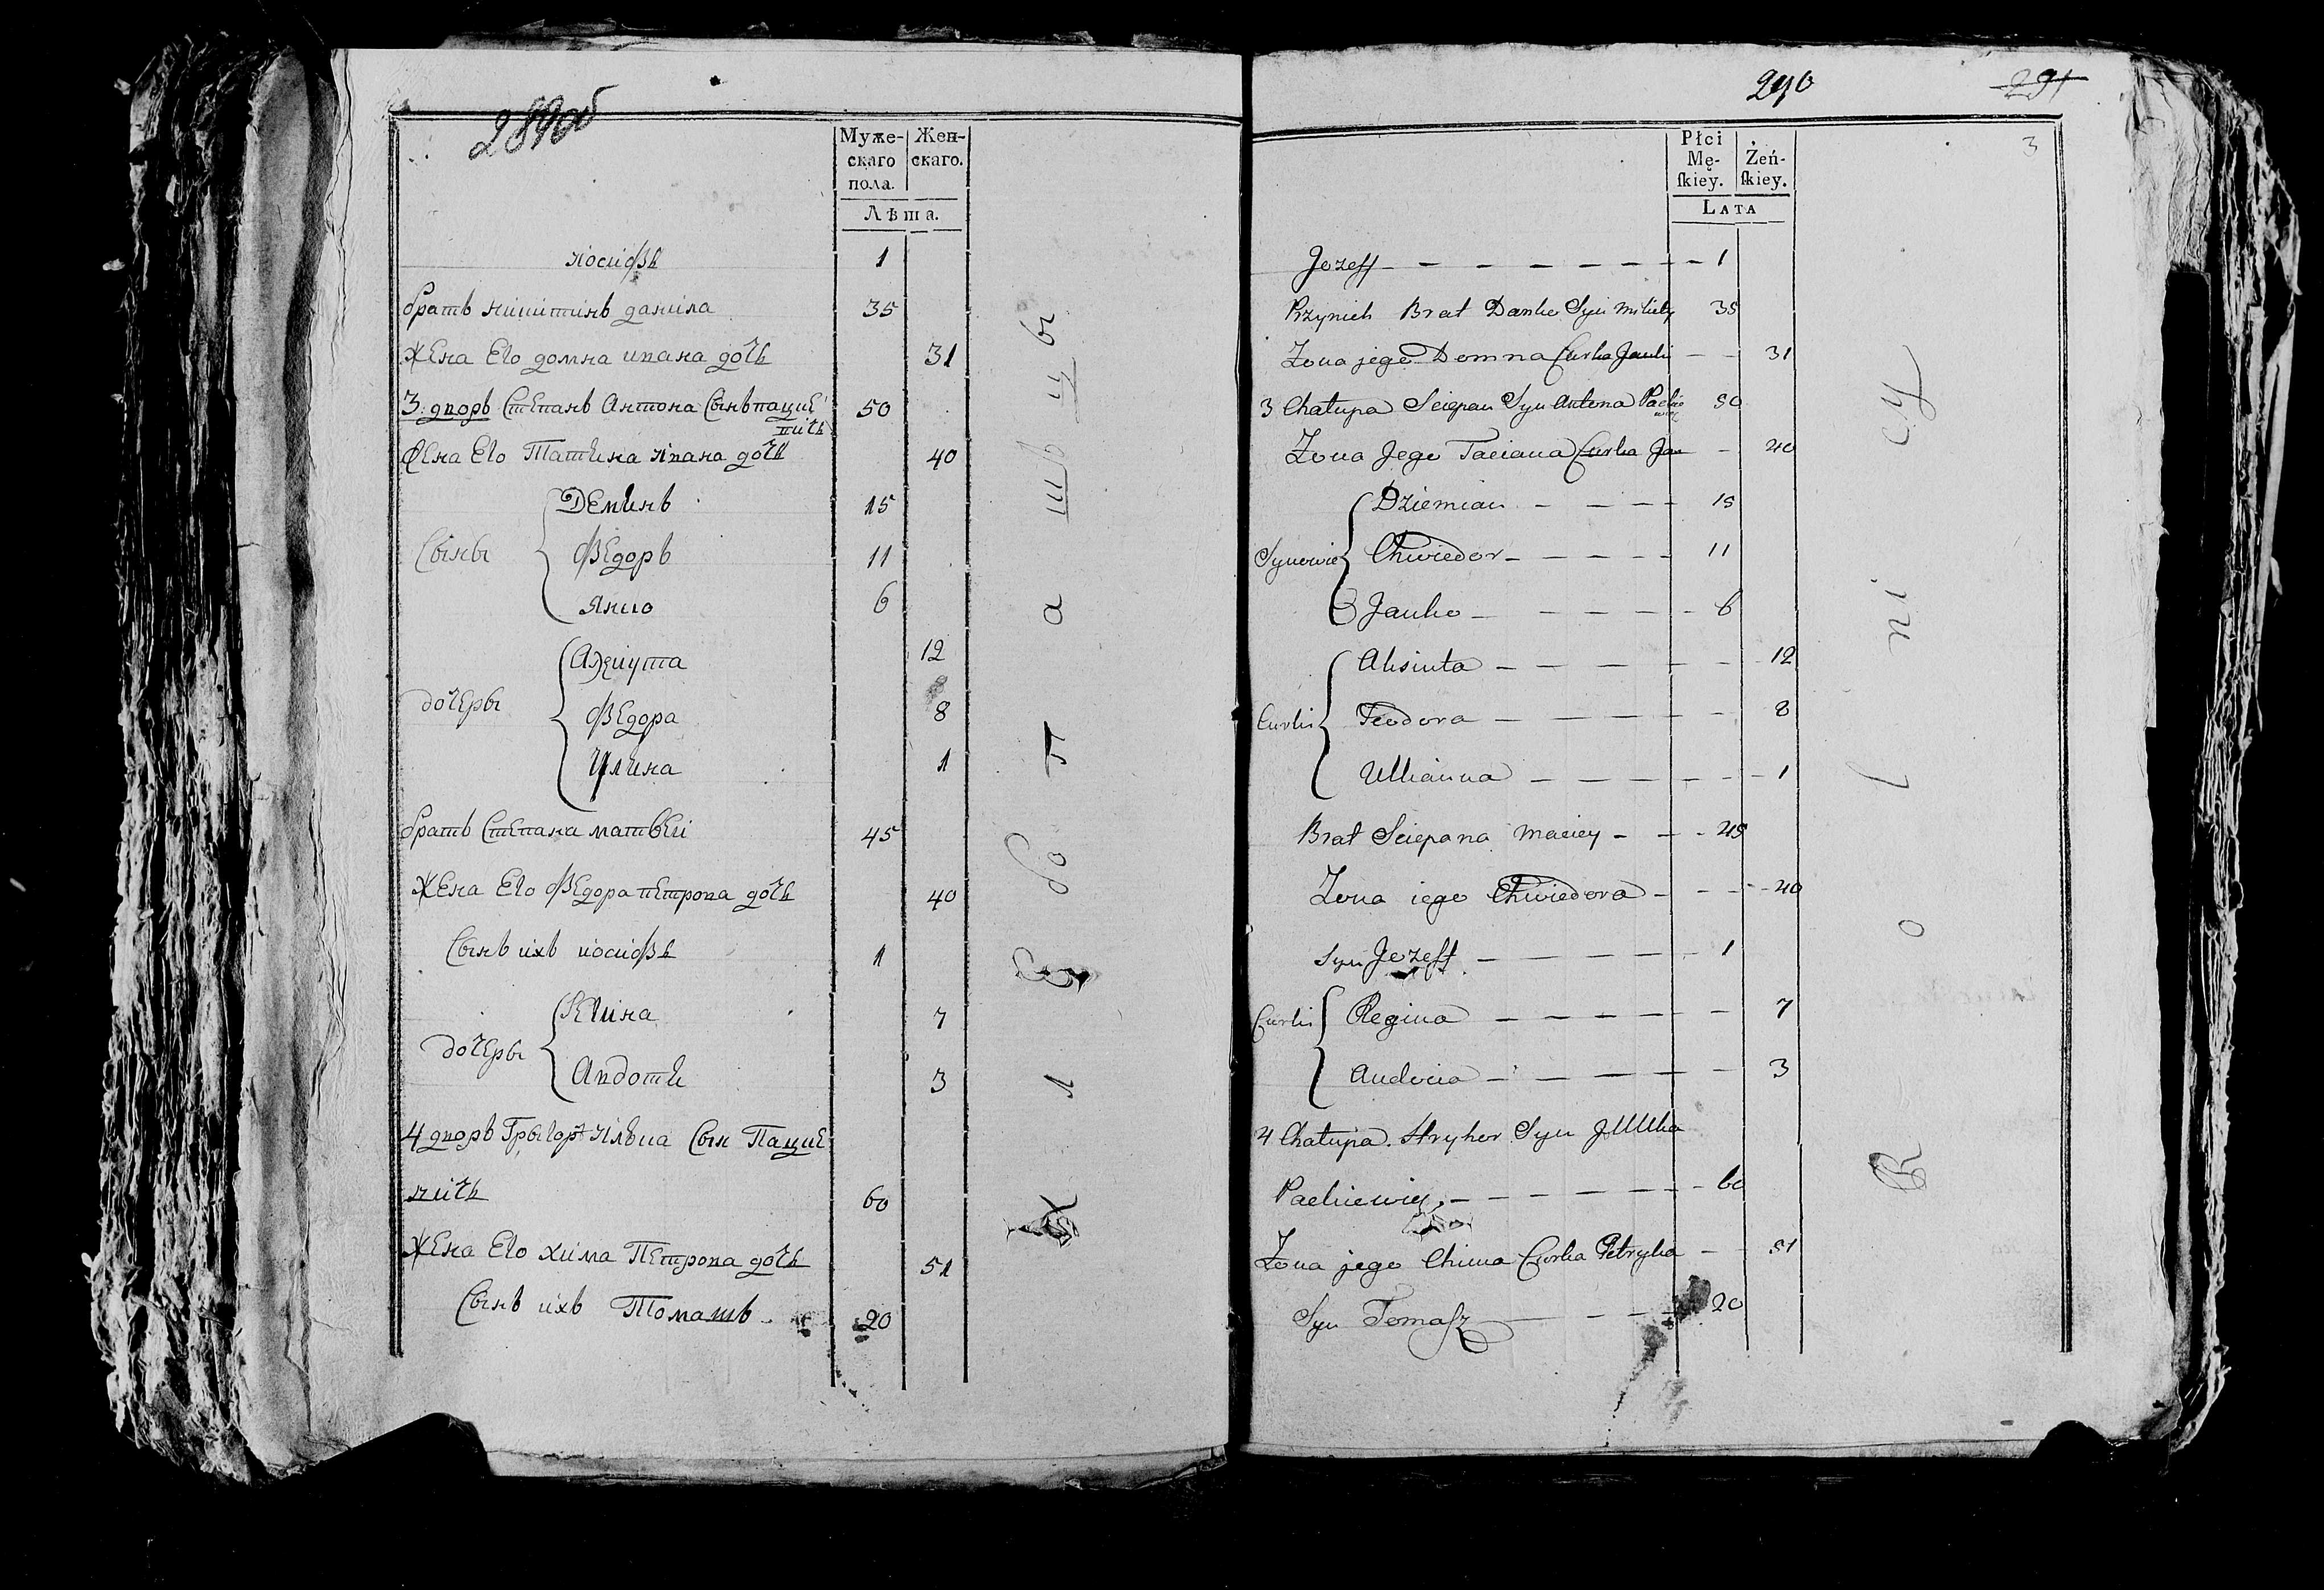 289 об
Муже- Жен-
скаго скаго.
пола.
Лѣта.
иосифъ 1
братъ никитинъ данила 35
жена его домна ивана дочь 31
3: дворъ Степанъ Антона сынъ пацке
вичь 50
жена его Татьяна ивана дочь 40
Демьянъ 15
Сыны Федоръ 11
Янко 6
Аксюта 12
дочеры Федора 8
Ульяна 1
братъ Степана матвеи 45
жена его Федора петрова дочь 40
сынъ ихъ иосифъ 1
Регина 7
дочеры Авдотья 3
4 дворъ Грыгоръ Илька сын Пацке
вичь 60
жена его хима Петрова дочь 51
сынъ ихъ Томашъ 20
Хлебопашцы
290 291
3
Płci
Mę- Żeń-
skiey. skiey.
Lata
Jozeff 1
Brat Danko Syn Mikity 35
Zona jego Domna Curka Janki 31
3 Chałupa Sciepan Syn Antona Packie
wicz 50
Zona Jego Taciana Curka Jan 40
Dziemian 15
Synowie Chwiedor 11
Janko 6
Aksiuta 12
Curki Teodora 8
Ullianna 1
Brat Sciepana Maciey 45
Zona iego Chwiedora 40
Syn Jozeff 1
Curki Regina 7
Audocia 3
4 Chałupa. Hryhor Syn Jllka
Packiewicz 60
Zona jego Chima Curka Petryka 51
Syn Tomasz 20
Rolnicy